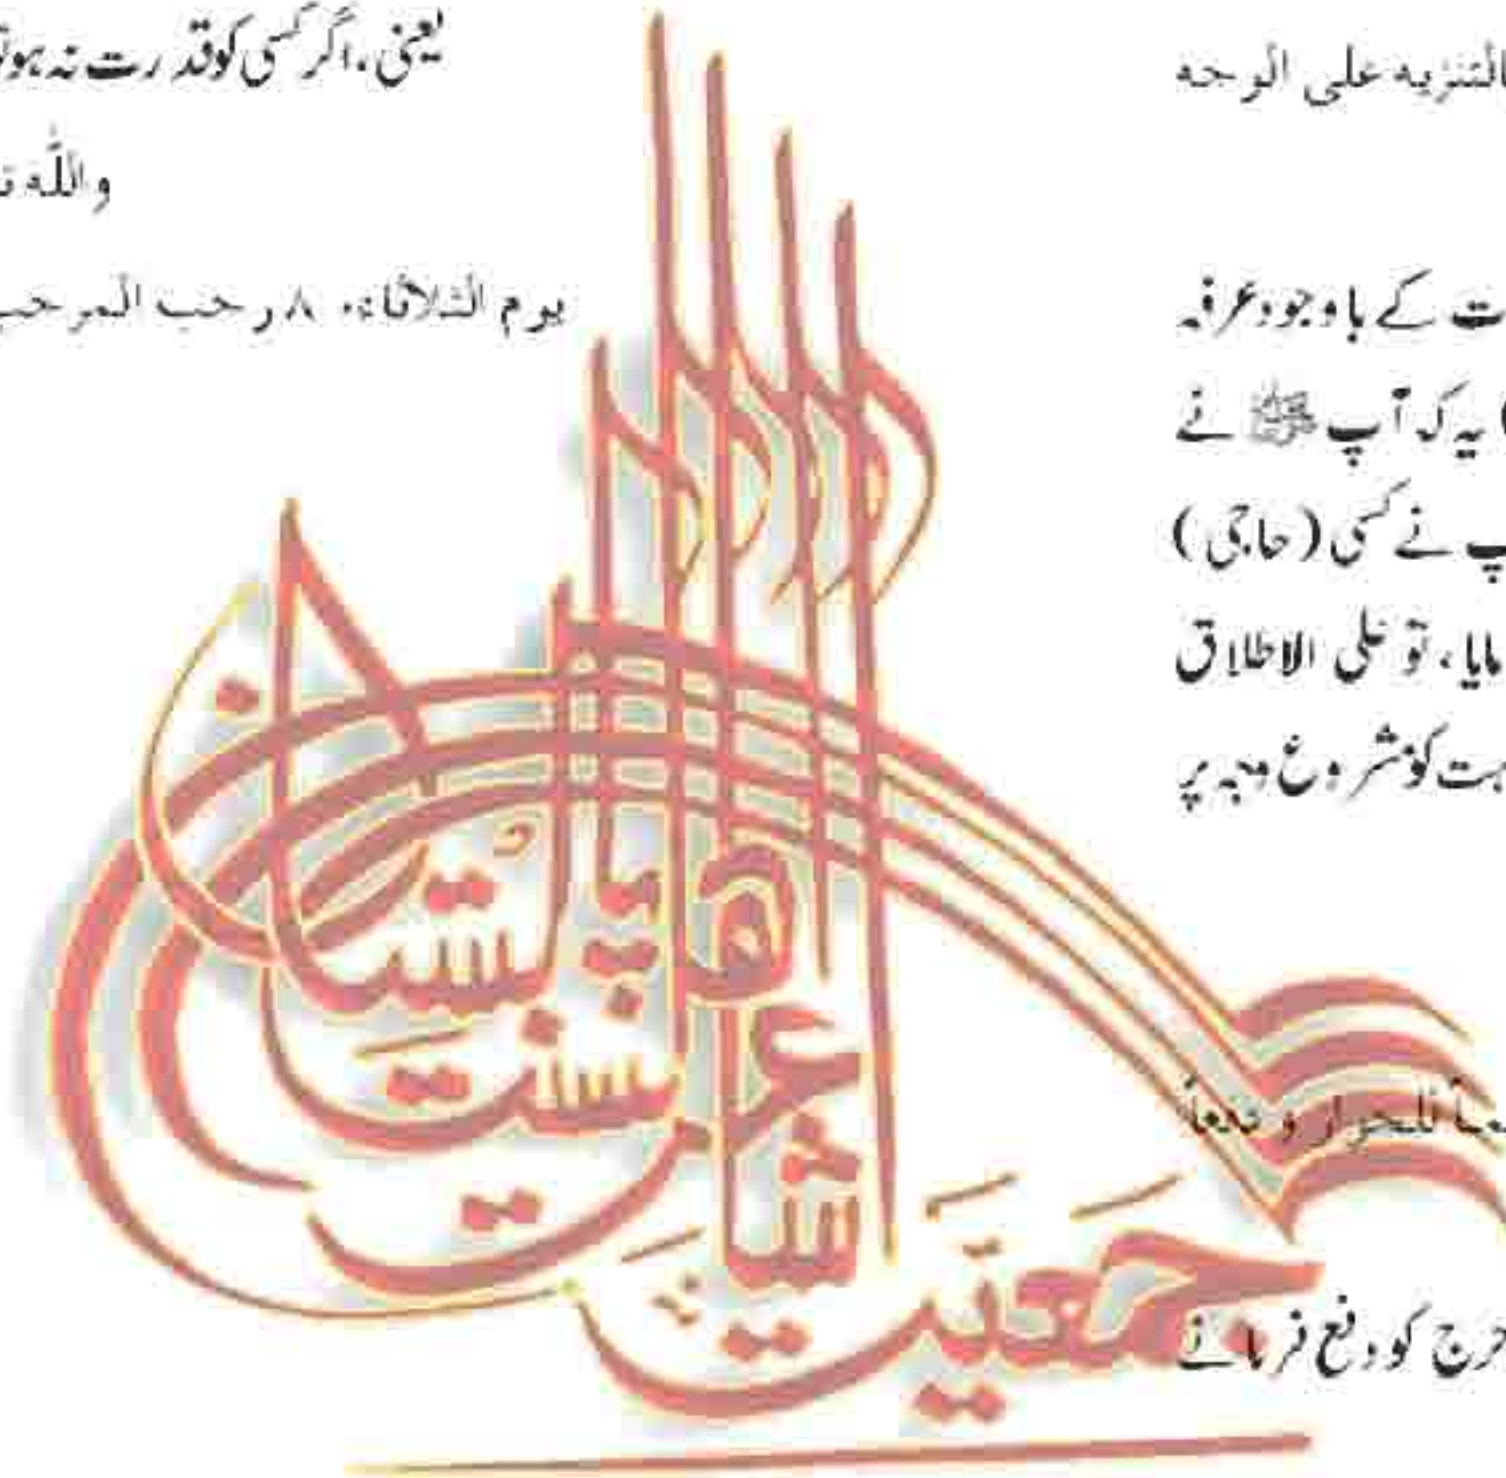 بالتنزيه على الوجه
ت کے باوجود عرفہ
) یہ کہ آپ ﷺ نے
پ نے کسی (حاجی)
مایا، تو علی الاطلاق
بت کو مشروع وجہ پر
للجواز و دفعاً
حرج کو دفع فرمانے
یعنی، اگر کسی کو قدرت نہ ہو تو
واللہ ت
يوم الثلاثاء، ٨ رجب المرجب
جمعیت
اشاعت
اہلسنت
پاکستان